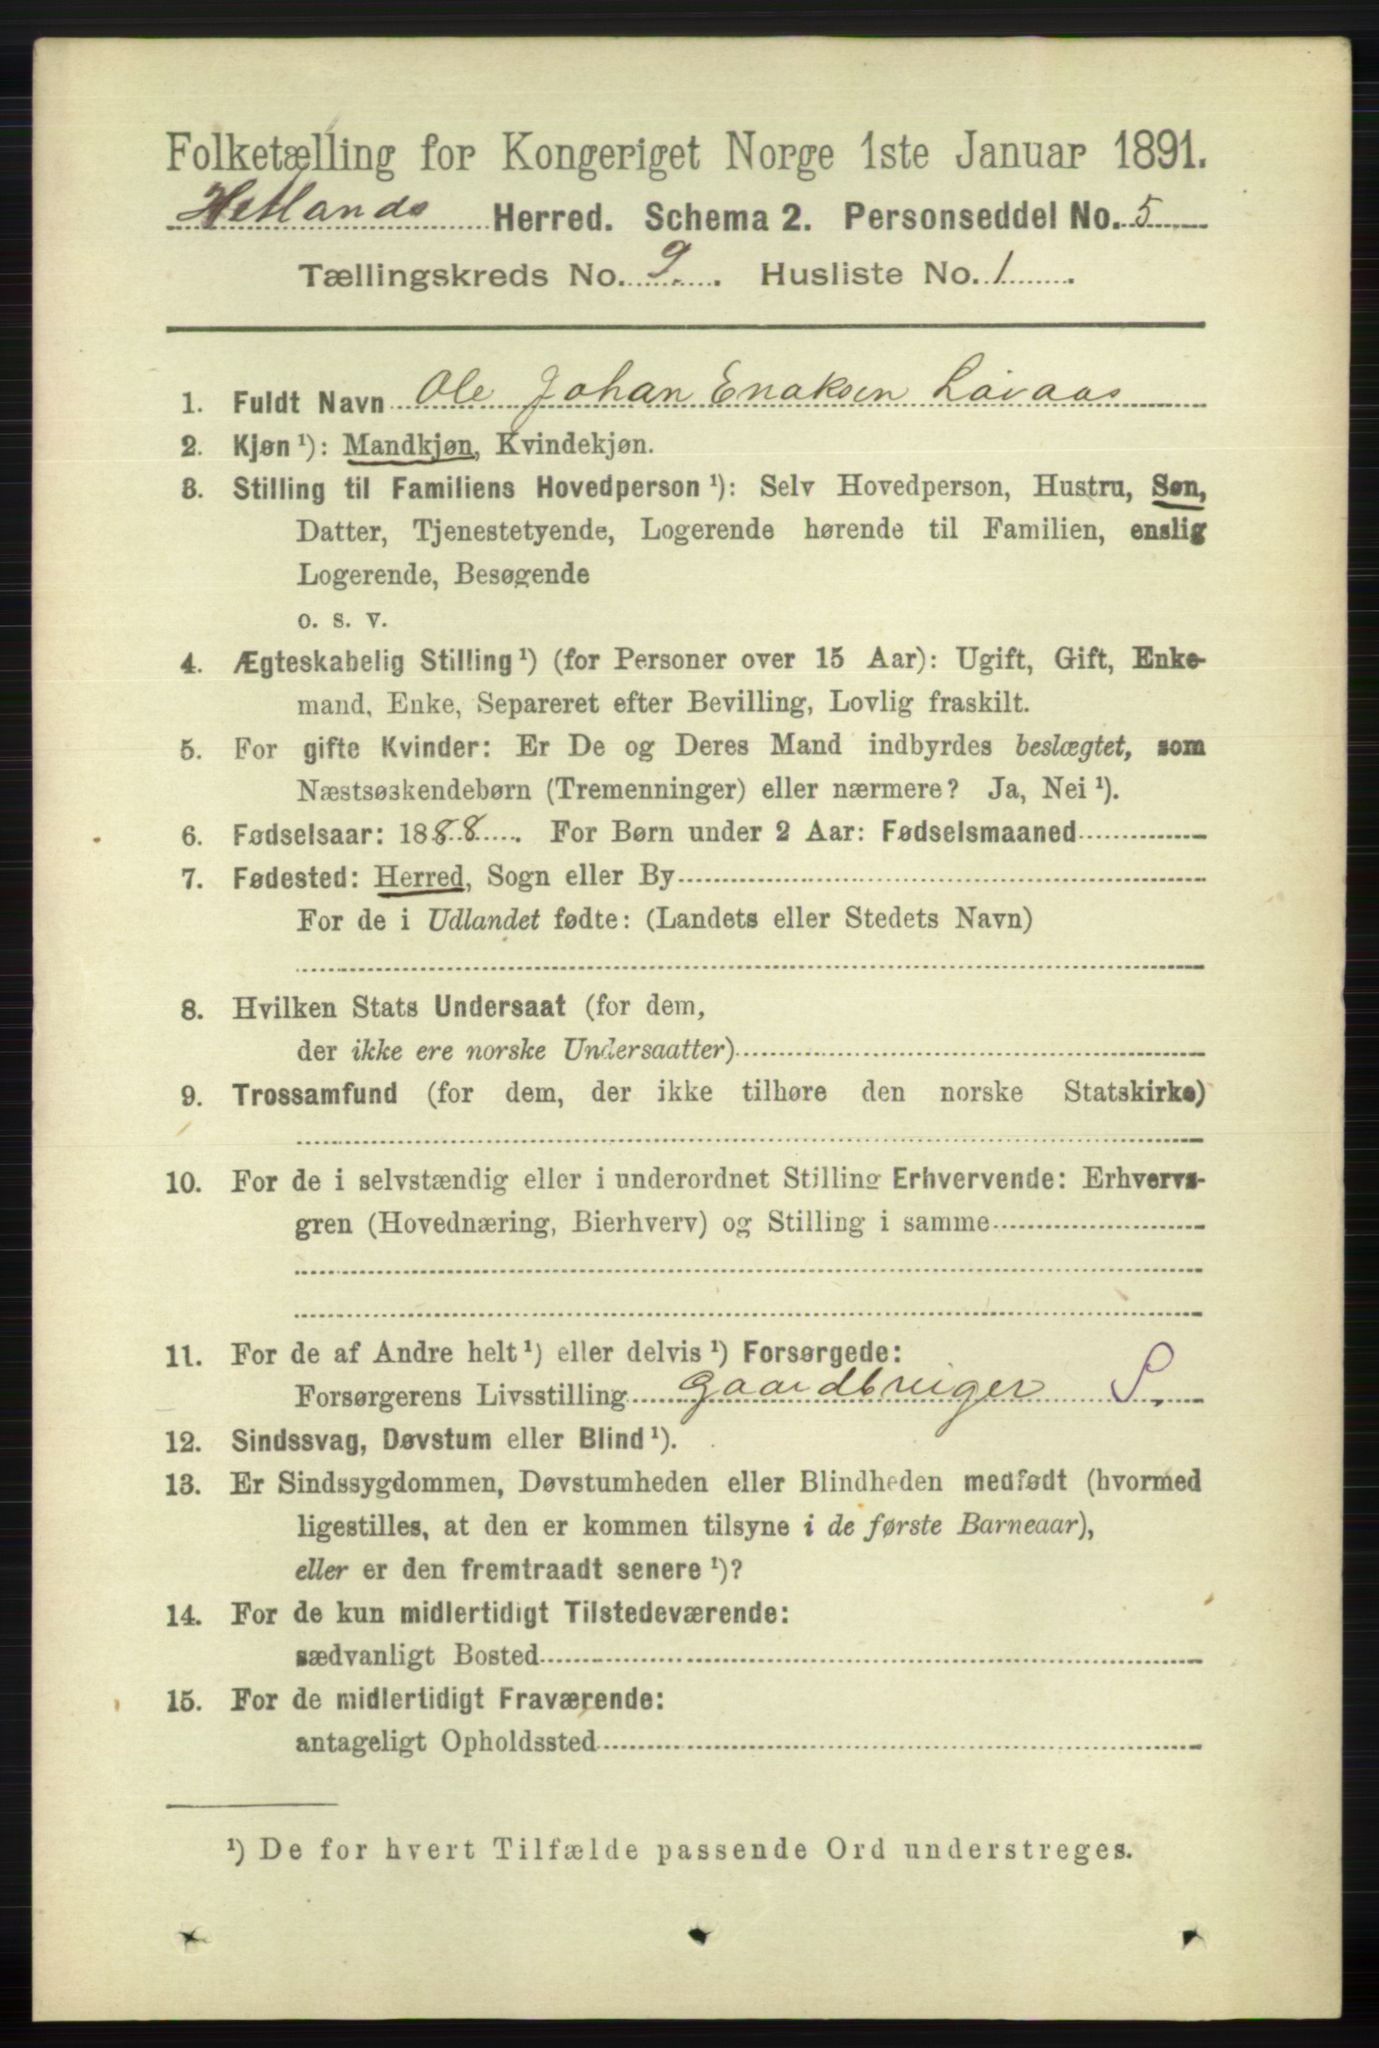 Folketælling for Kongeriget Norge 1ste Januar 1891.
Hetlands Herred. Schema 2. Personseddel No. 5
Tællingskreds No. 9. Husliste No. 1
1. Fuldt Navn Ole Johan Enoksen Låvaas
2. Kjøn ¹): Mandkjøn, Kvindekjøn.
3. Stilling til Familiens Hovedperson ¹): Selv Hovedperson, Hustru, Søn,
Datter, Tjenestetyende, Logerende hørende til Familien, enslig
Logerende, Besøgende
o. s. v.
4. Ægteskabelig Stilling ¹) (for Personer over 15 Aar): Ugift, Gift, Enke-
mand, Enke, Separeret efter Bevilling, Lovlig fraskilt.
5. For gifte Kvinder: Er De og Deres Mand indbyrdes beslægtet, som
Næstsøskendebørn (Tremenninger) eller nærmere? Ja, Nei ¹).
6. Fødselsaar: 1888. For Børn under 2 Aar: Fødselsmaaned
7. Fødested: Herred, Sogn eller By
For de i Udlandet fødte: (Landets eller Stedets Navn)
8. Hvilken Stats Undersaat (for dem,
der ikke ere norske Undersaatter)
9. Trossamfund (for dem, der ikke tilhøre den norske Statskirke)
10. For de i selvstændig eller i underordnet Stilling Erhvervende: Erhvervs-
gren (Hovednæring, Bierhverv) og Stilling i samme
11. For de af Andre helt ¹) eller delvis ¹) Forsørgede:
Forsørgerens Livsstilling Gaardbruiger S.
12. Sindssvag, Døvstum eller Blind ¹).
13. Er Sindssygdommen, Døvstumheden eller Blindheden medfødt (hvormed
ligestilles, at den er kommen tilsyne i de første Barneaar),
eller er den fremtraadt senere ¹)?
14. For de kun midlertidigt Tilstedeværende:
sædvanligt Bosted
15. For de midlertidigt Fraværende:
antageligt Opholdssted
¹) De for hvert Tilfælde passende Ord understreges.